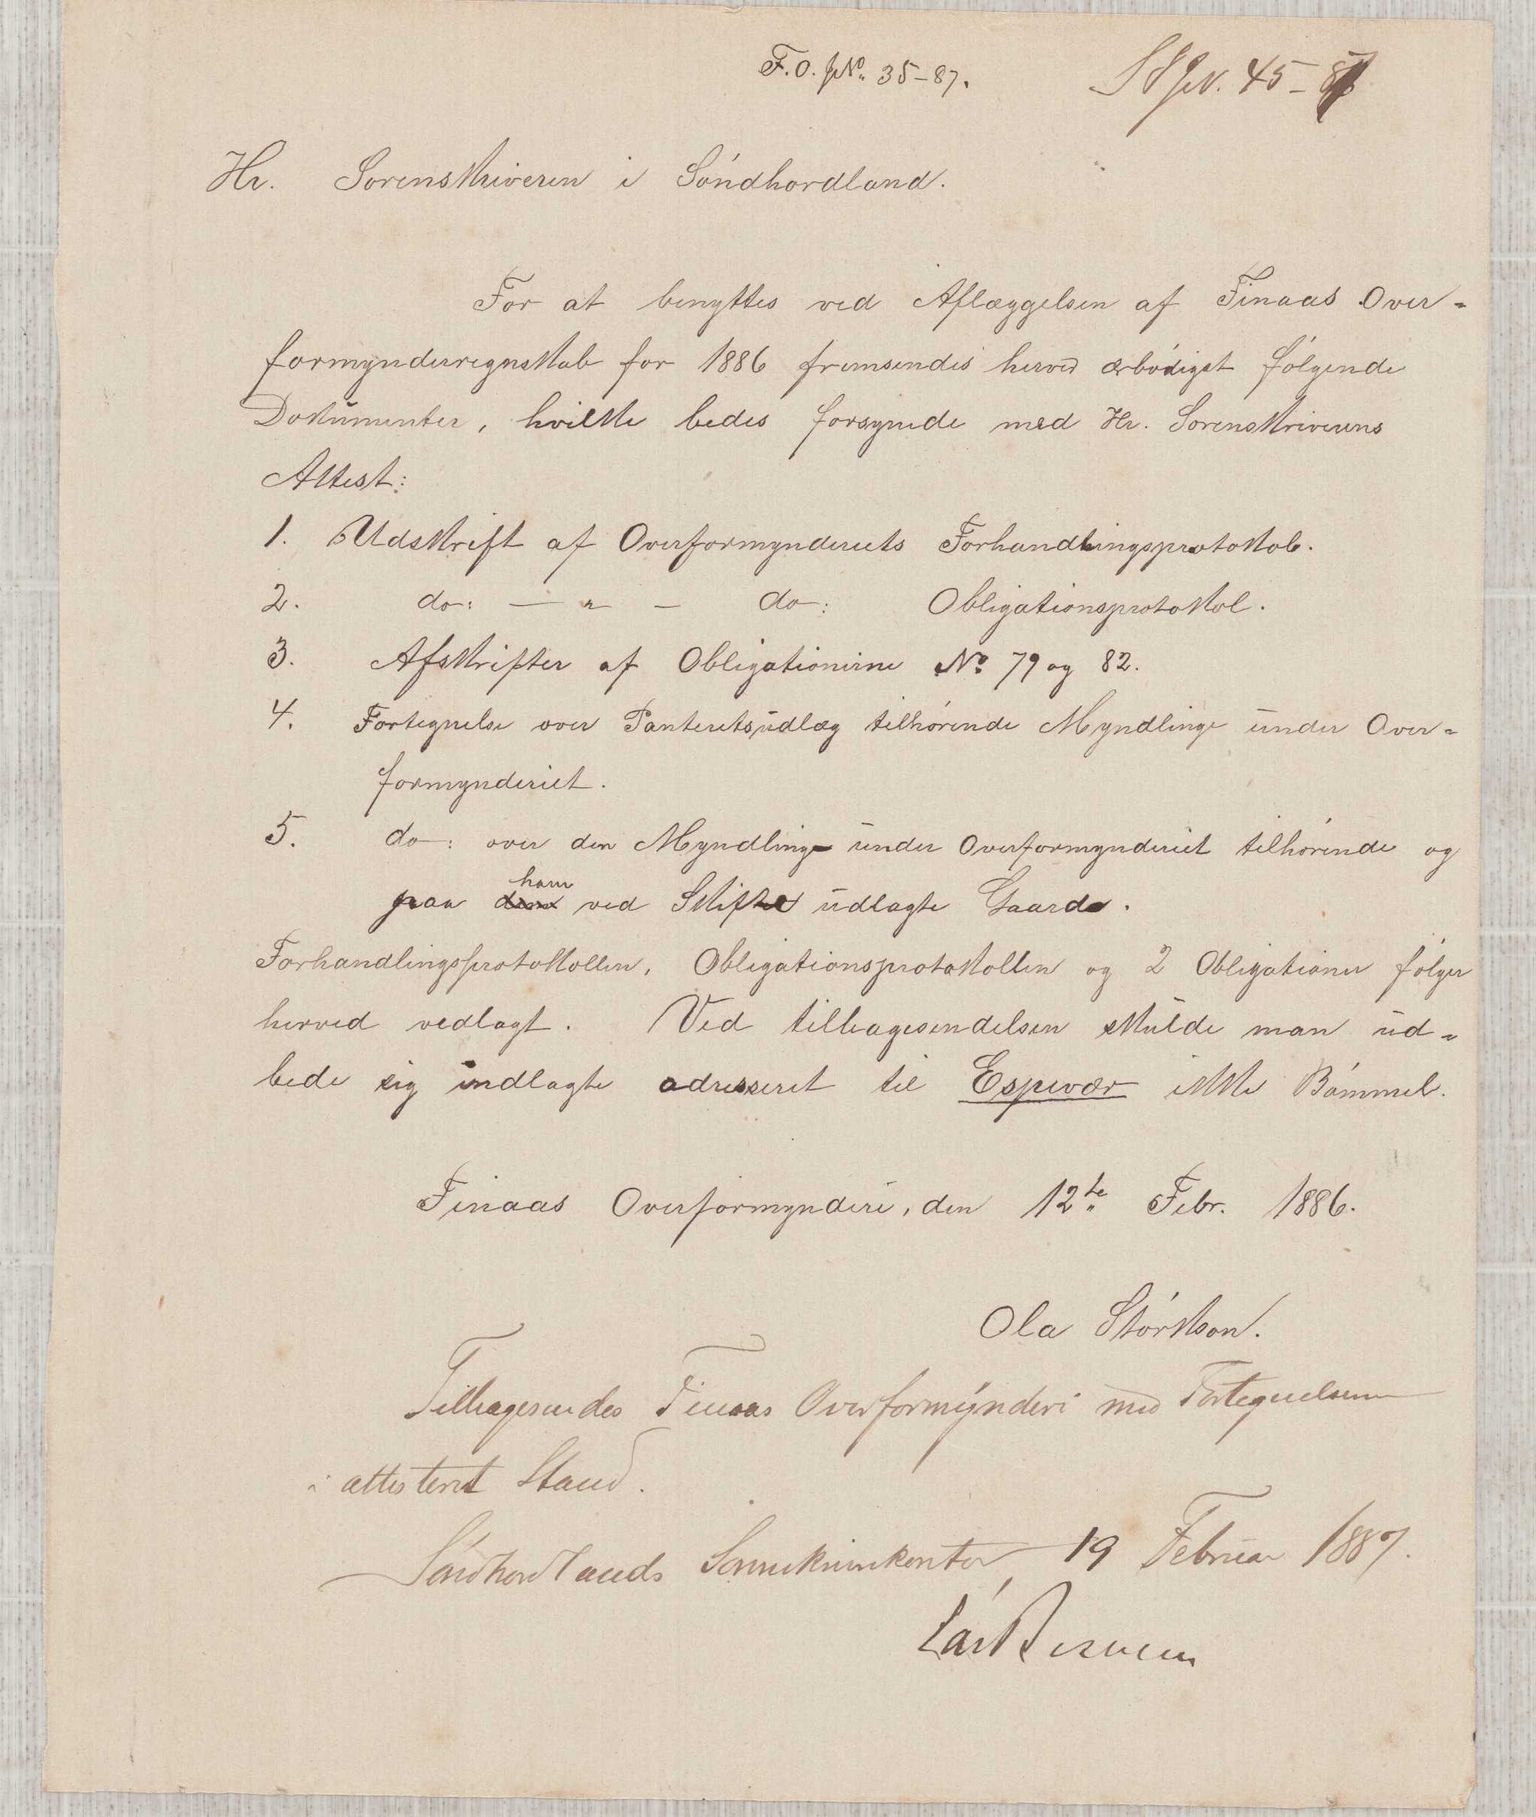 F.O. JNo. 35-87.
S J.N. 45-87
Hr. Sorenskriveren i Söndhordland.
For at benyttes ved Aflæggelsen af Finaas Over-
formynderregnskab for 1886 fremsendes herved ærbödigst fölgende
Dokumenter, hvilke bedes forsynede med Hr. Sorenskriverens
Attest:
1. Udskrift af Overformynderiets Forhandlingsprotokol.
2. do: — " — do: Obligationsprotokol.
3. Afskrifter af Obligationerne No. 79 og 82.
4. Fortegnelse over Panteretsudlæg tilhörende Myndlinge under Over-
formynderiet.
5. do: over den Myndling under Overformynderiet tilhörende og
ham
paa dem ved Skifte udlagte Gaard.
Forhandlingsprotokollen, Obligationsprotokollen og 2 Obligationer fölger
herved vedlagt. Ved tilbagesendelsen skulde man ud-
bede sig indlagte adresseret til Espevær ikke Bömmel.
Finaas Overformynderi, den 12te Febr. 1886.
Ola Störkson.
Tilbagesendes Finaas Overformynderi med Fortegnelserne
i attesteret Stand.
Söndhordlands Sorenskriverkontor 19 Februar 1887.